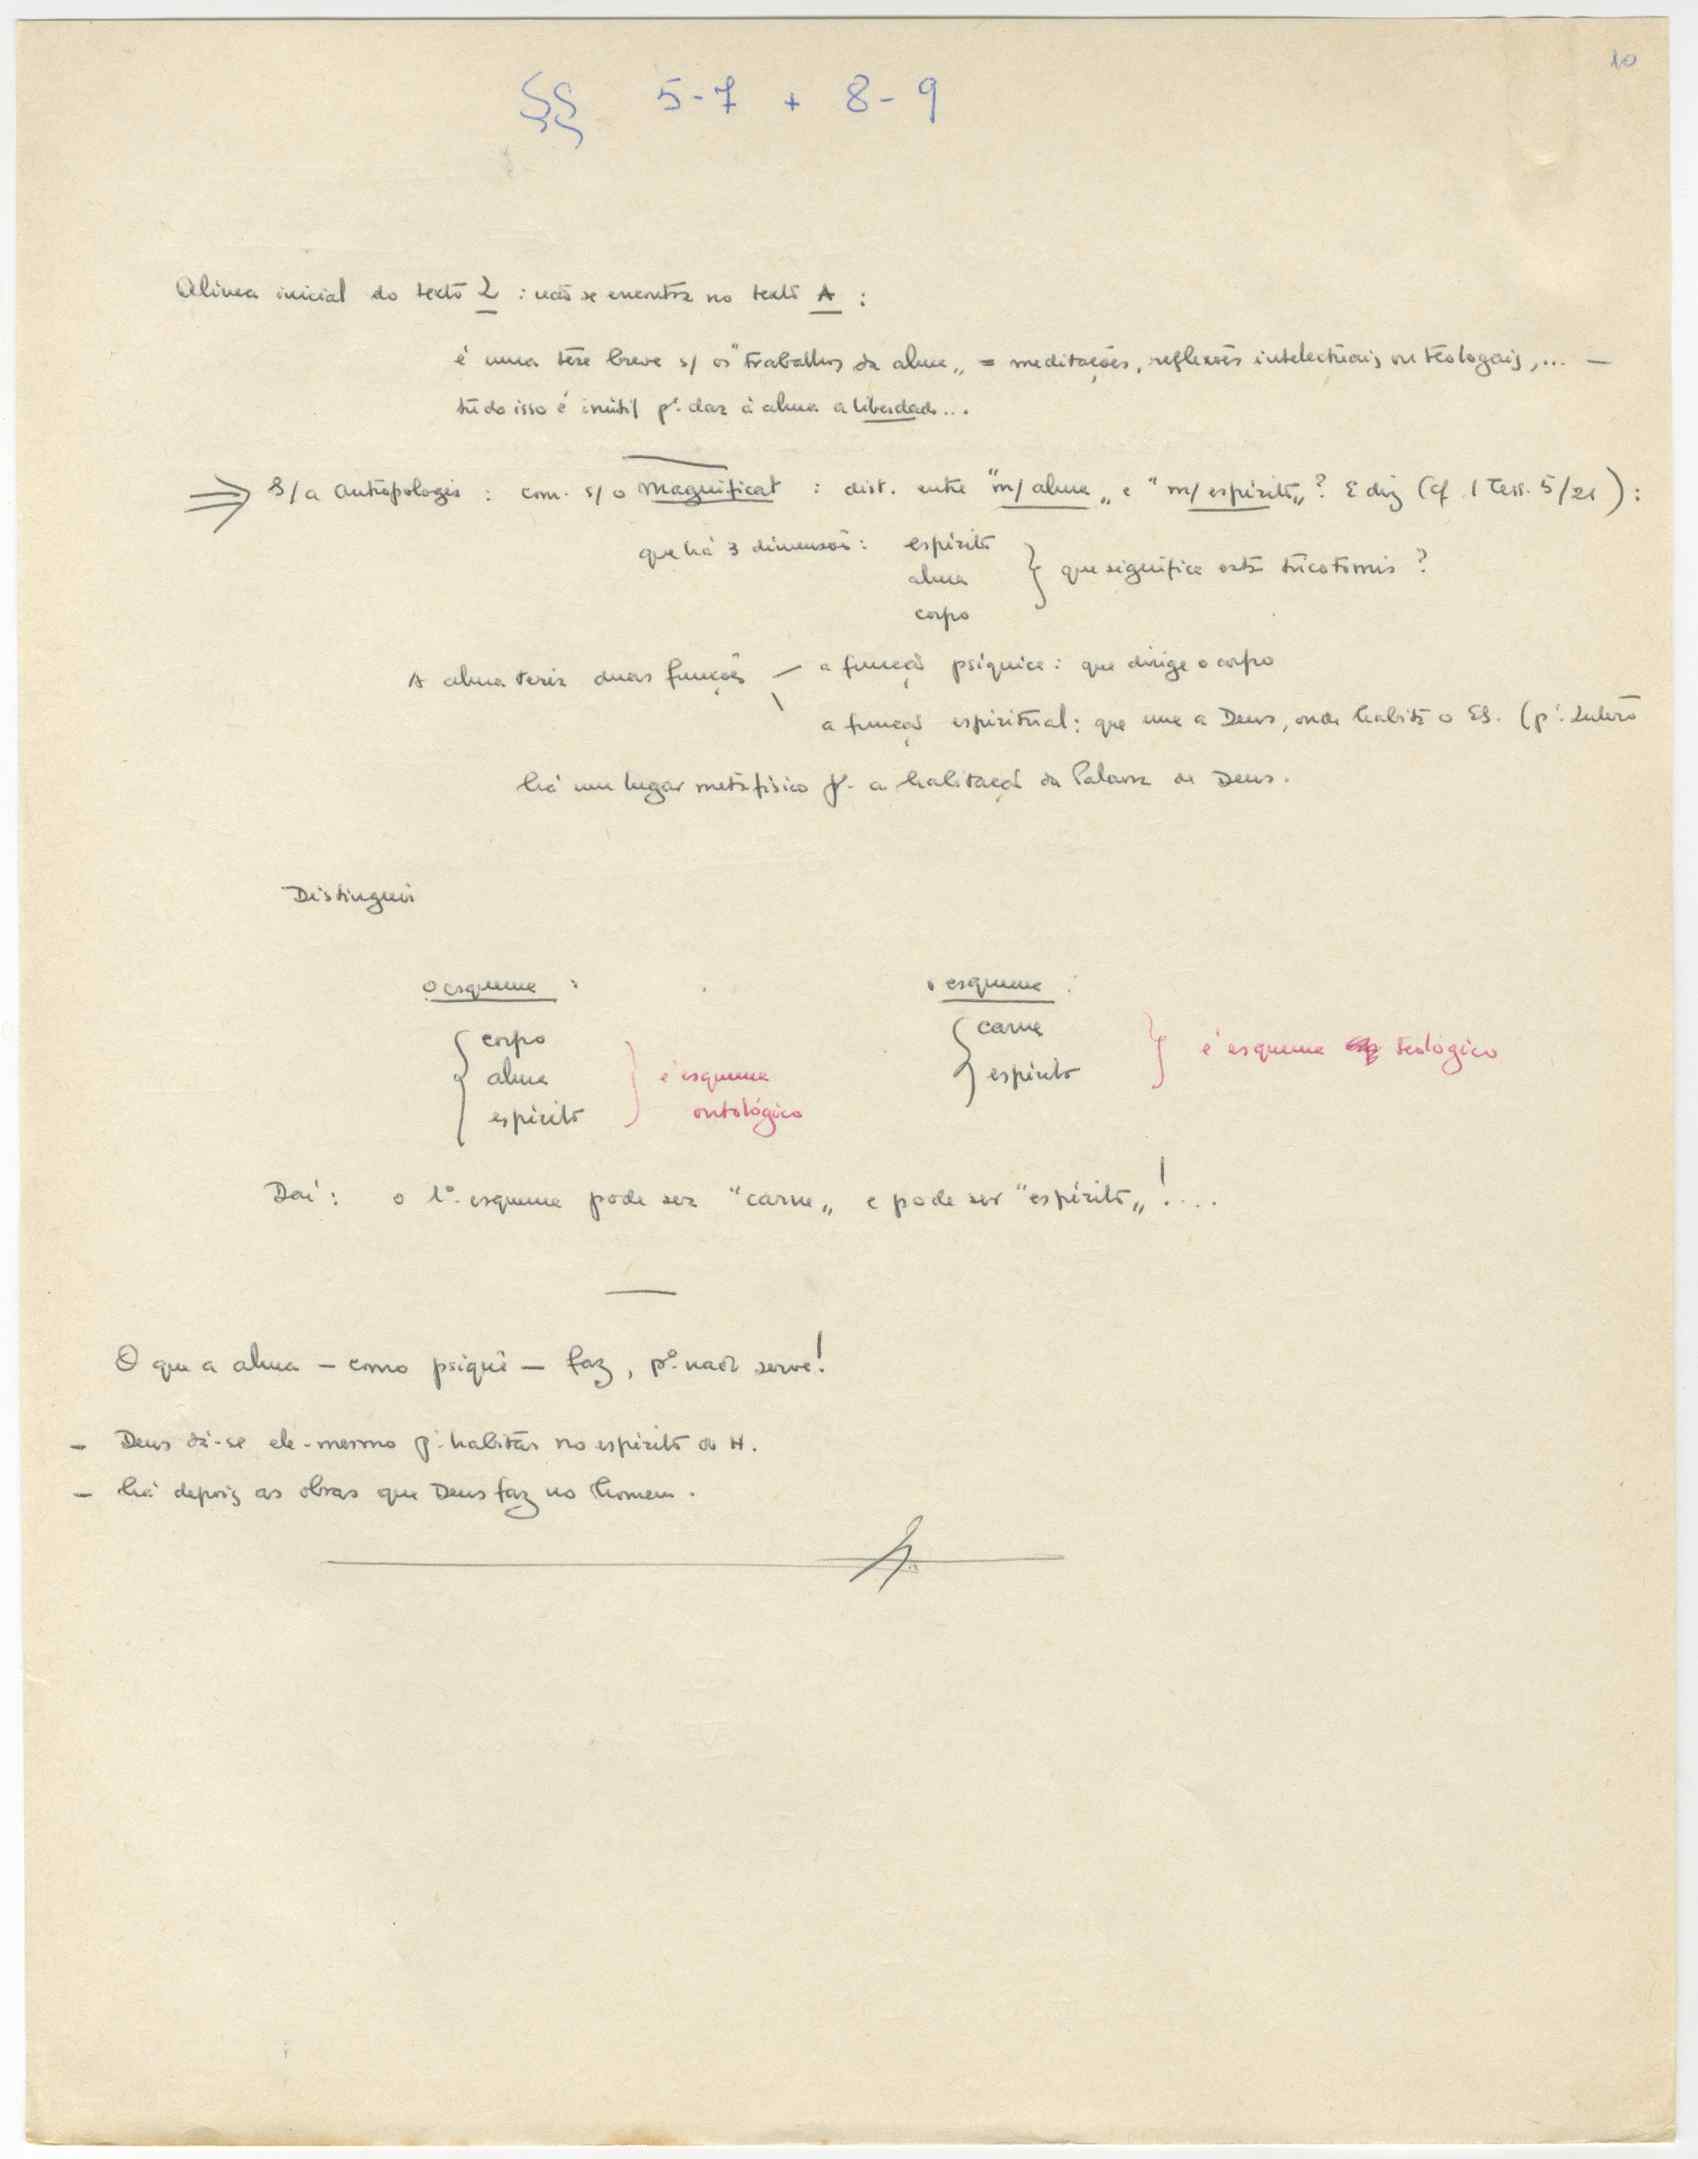 10
§§ 5-7 + 8-9
Alínea inicial do texto L : não se encontra no texto A :
é uma tese breve s/ os "trabalhos da alma" = meditações, reflexões intelectuais ou teologais, ... —
tudo isso é inútil pª. dar à alma a liberdade...
⇒ S/ a Antropologia : com. s/ o Magnificat : dist. entre "m/ alma" e "m/ espírito"? E diz (cf. 1 Tess. 5/21) :
que há 3 dimensões: espírito
alma
corpo
} que significa esta tricotomia ?
A alma teria duas funções — a função psíquica: que dirige o corpo
\ a função espiritual: que une a Deus, onde habita o ES. (pª. Lutero
há um lugar metafísico pª. a habitação da Palavra de Deus.
Distinguir
o esquema : o esquema :
{ corpo
alma
espírito
} é esquema
ontológico
{ carne
espírito
} é esquema teológico
Daí : o 1º. esquema pode ser "carne" e pode ser "espírito"! ...
O que a alma — como psiquê — faz, pª. nada serve!
- Deus dá-se ele-mesmo pª. habitar no espírito do H.
- há depois as obras que Deus faz no homem.